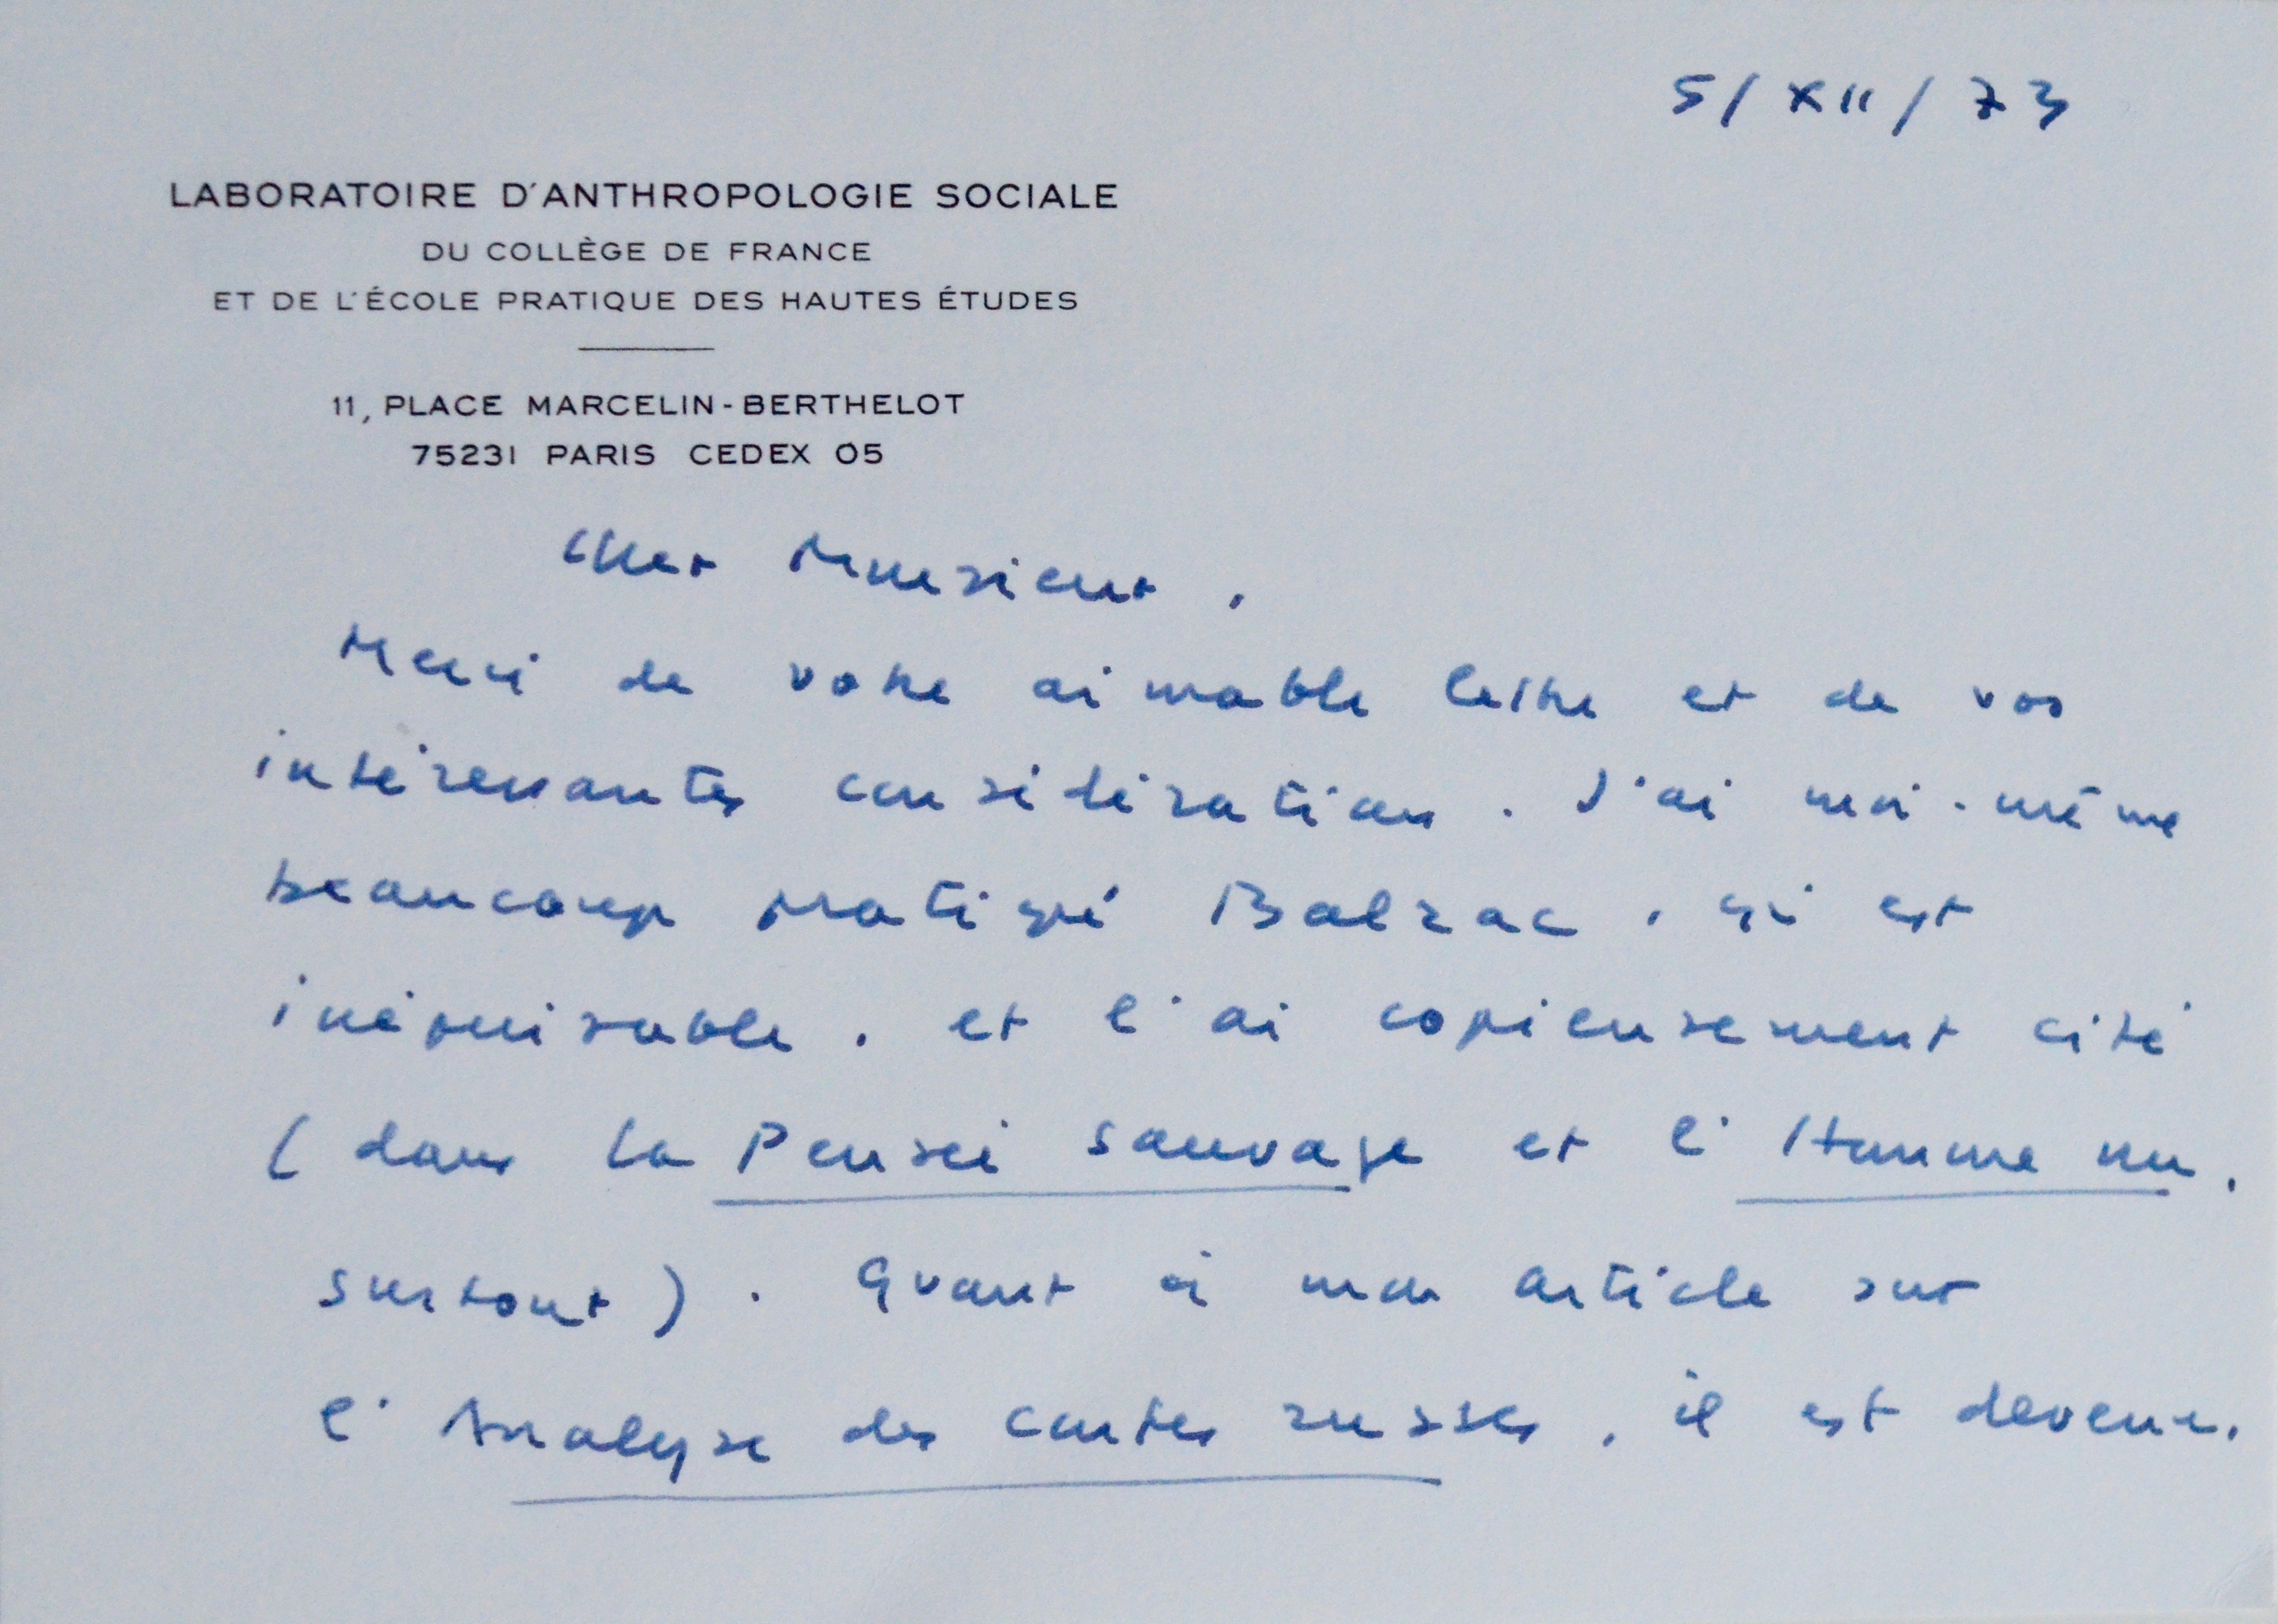 5/XII/73
LABORATOIRE D'ANTHROPOLOGIE SOCIALE
DU COLLÈGE DE FRANCE
ET DE L'ÉCOLE PRATIQUE DES HAUTES ÉTUDES
11, PLACE MARCELIN-BERTHELOT
75231 PARIS CEDEX 05
Cher Monsieur,
Merci de votre aimable lettre et de vos
intéressantes considérations. J'ai moi-même
beaucoup pratiqué Balzac, qui est
inépuisable, et l'ai copieusement cité
(dans la Pensée sauvage et l'Homme nu,
surtout). Quant à mon article sur
l'Analyse des contes russes, il est devenu,